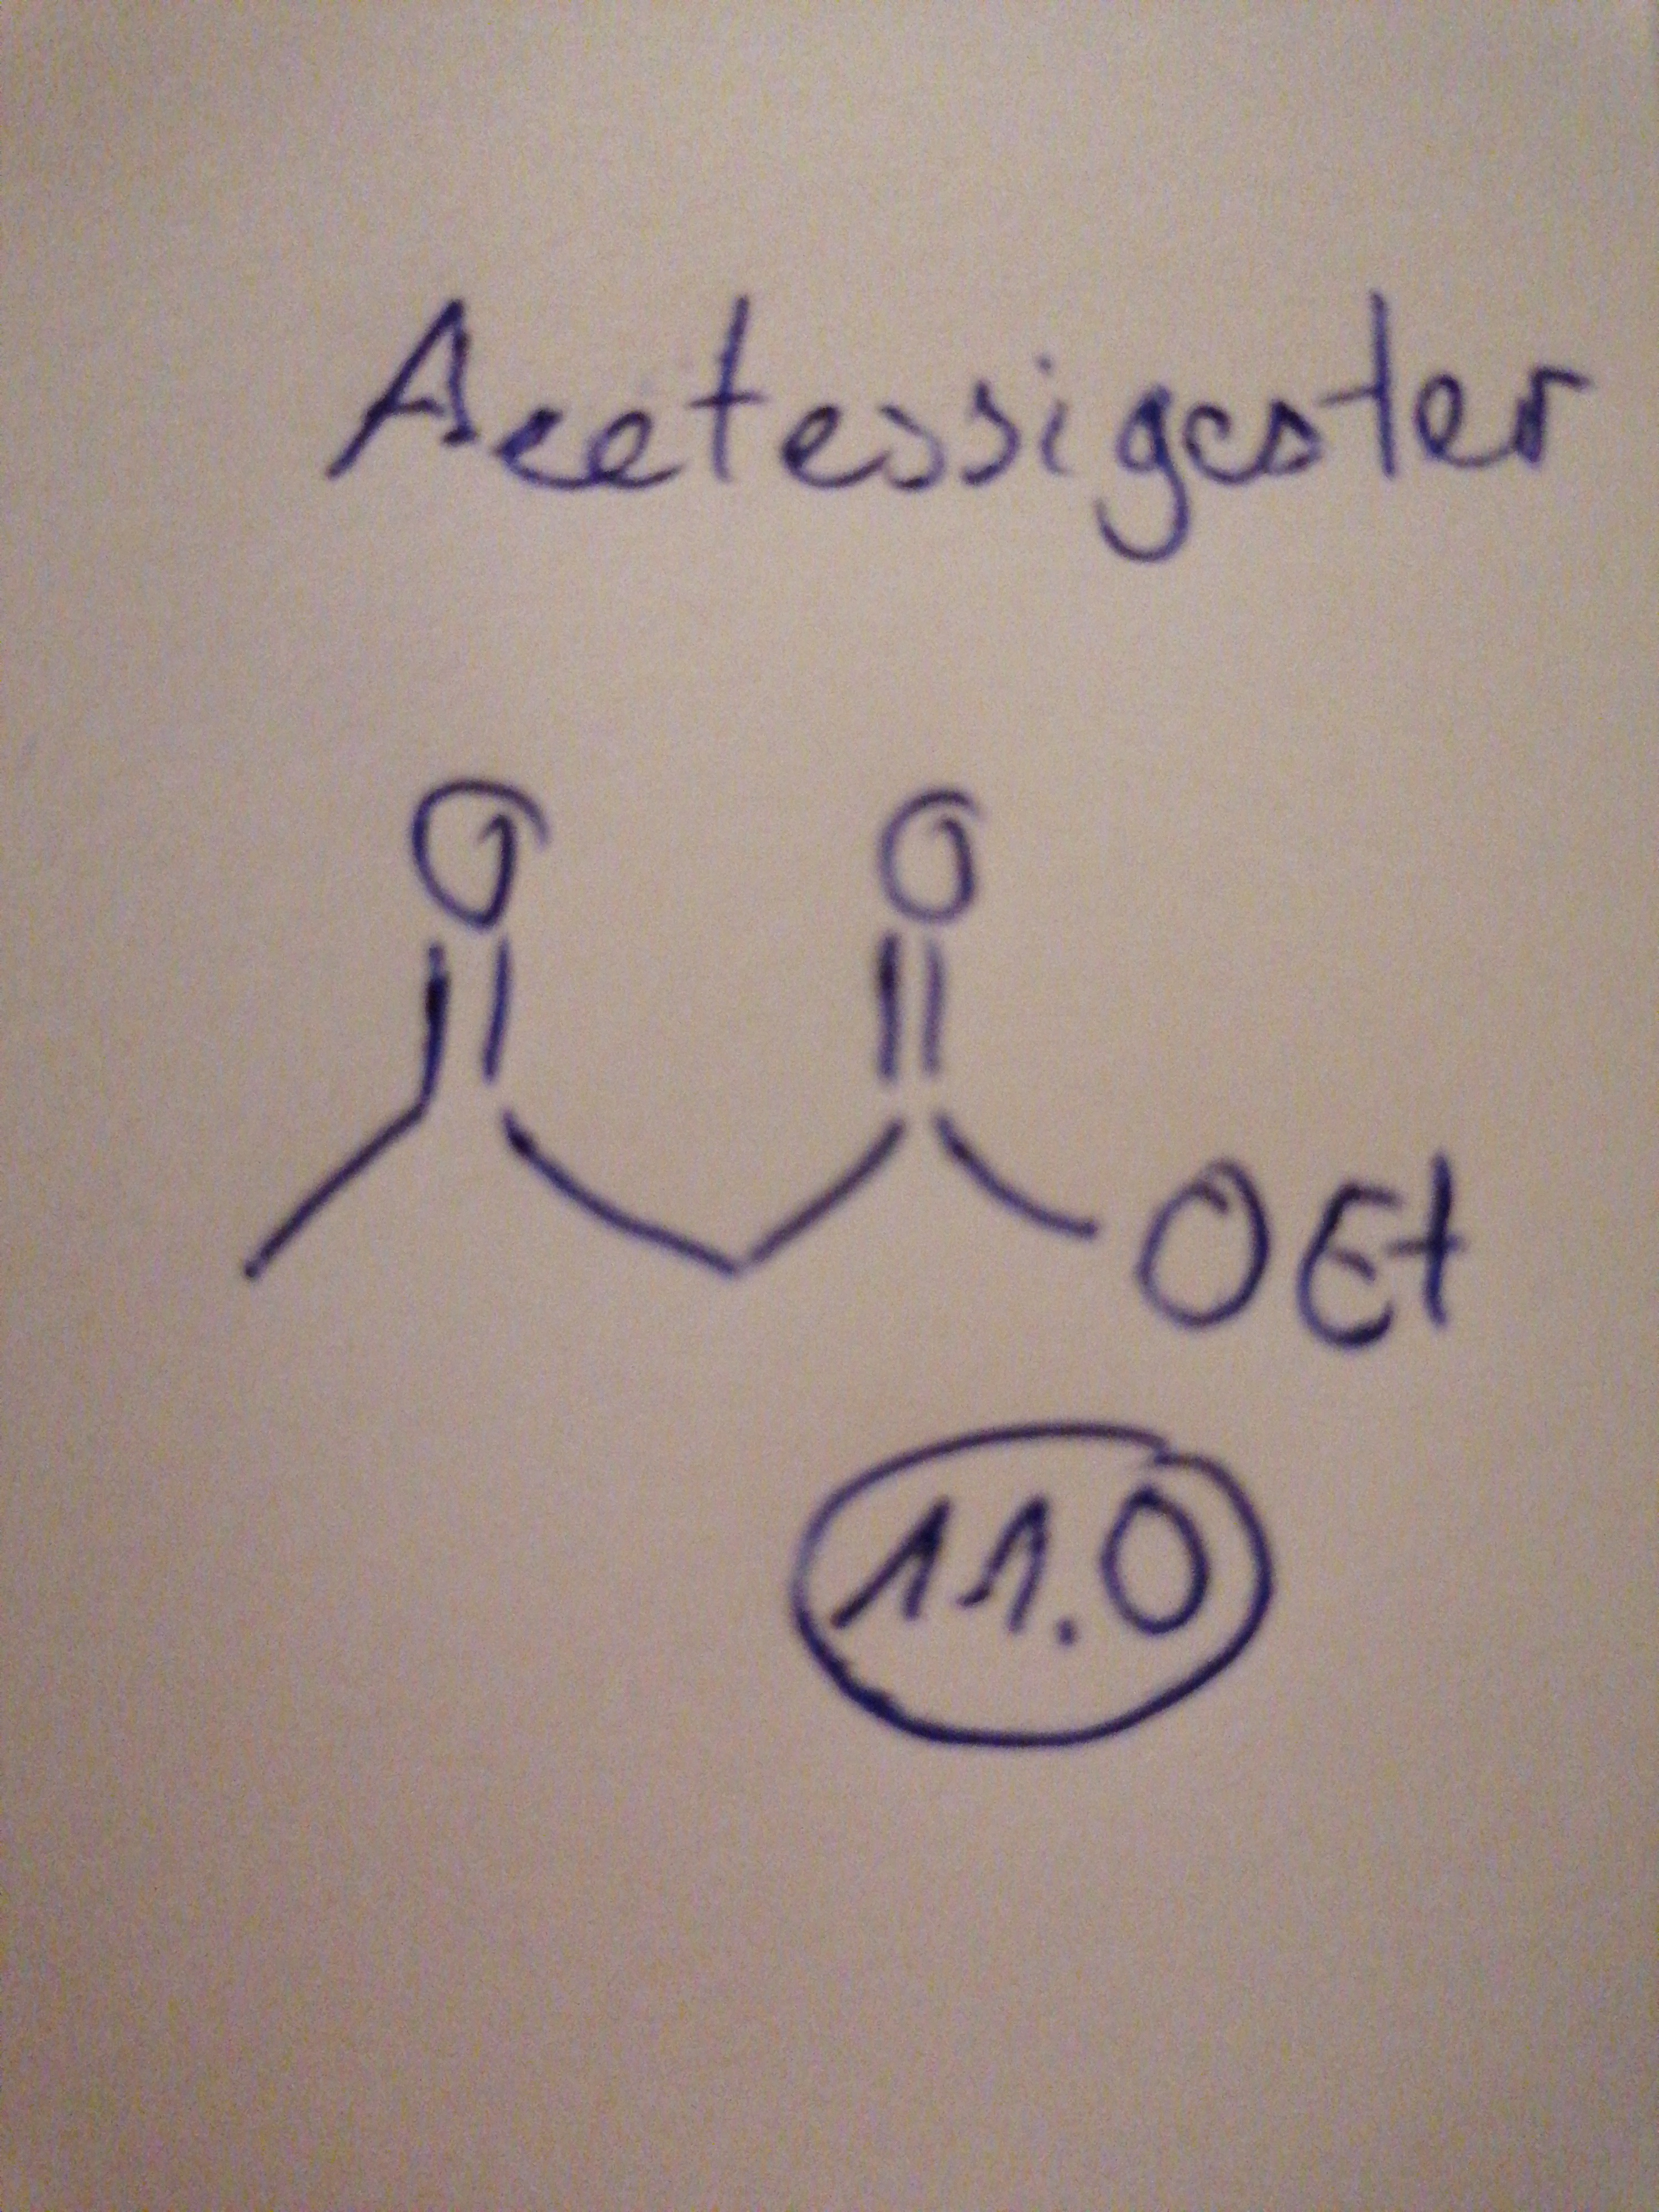 Acetessigester
O O
OEt
11.0